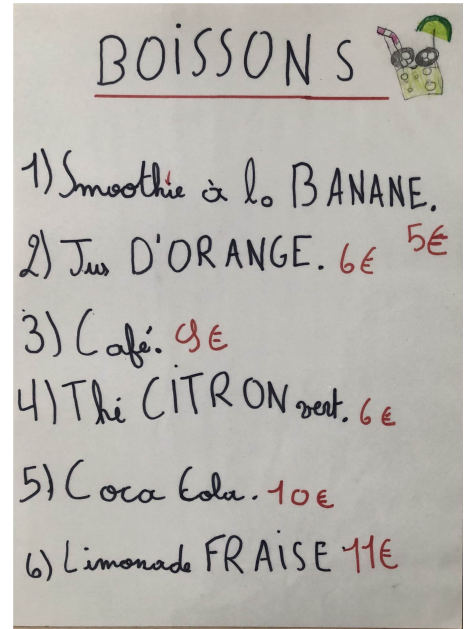 BOISSONS
1) Smoothie à la BANANE.
5€
2) Jus D'ORANGE. 6€
3) Café. 9€
4) Thé CITRON vert. 6€
5) Coca Cola. 10€
6) Limonade FRAISE 11€